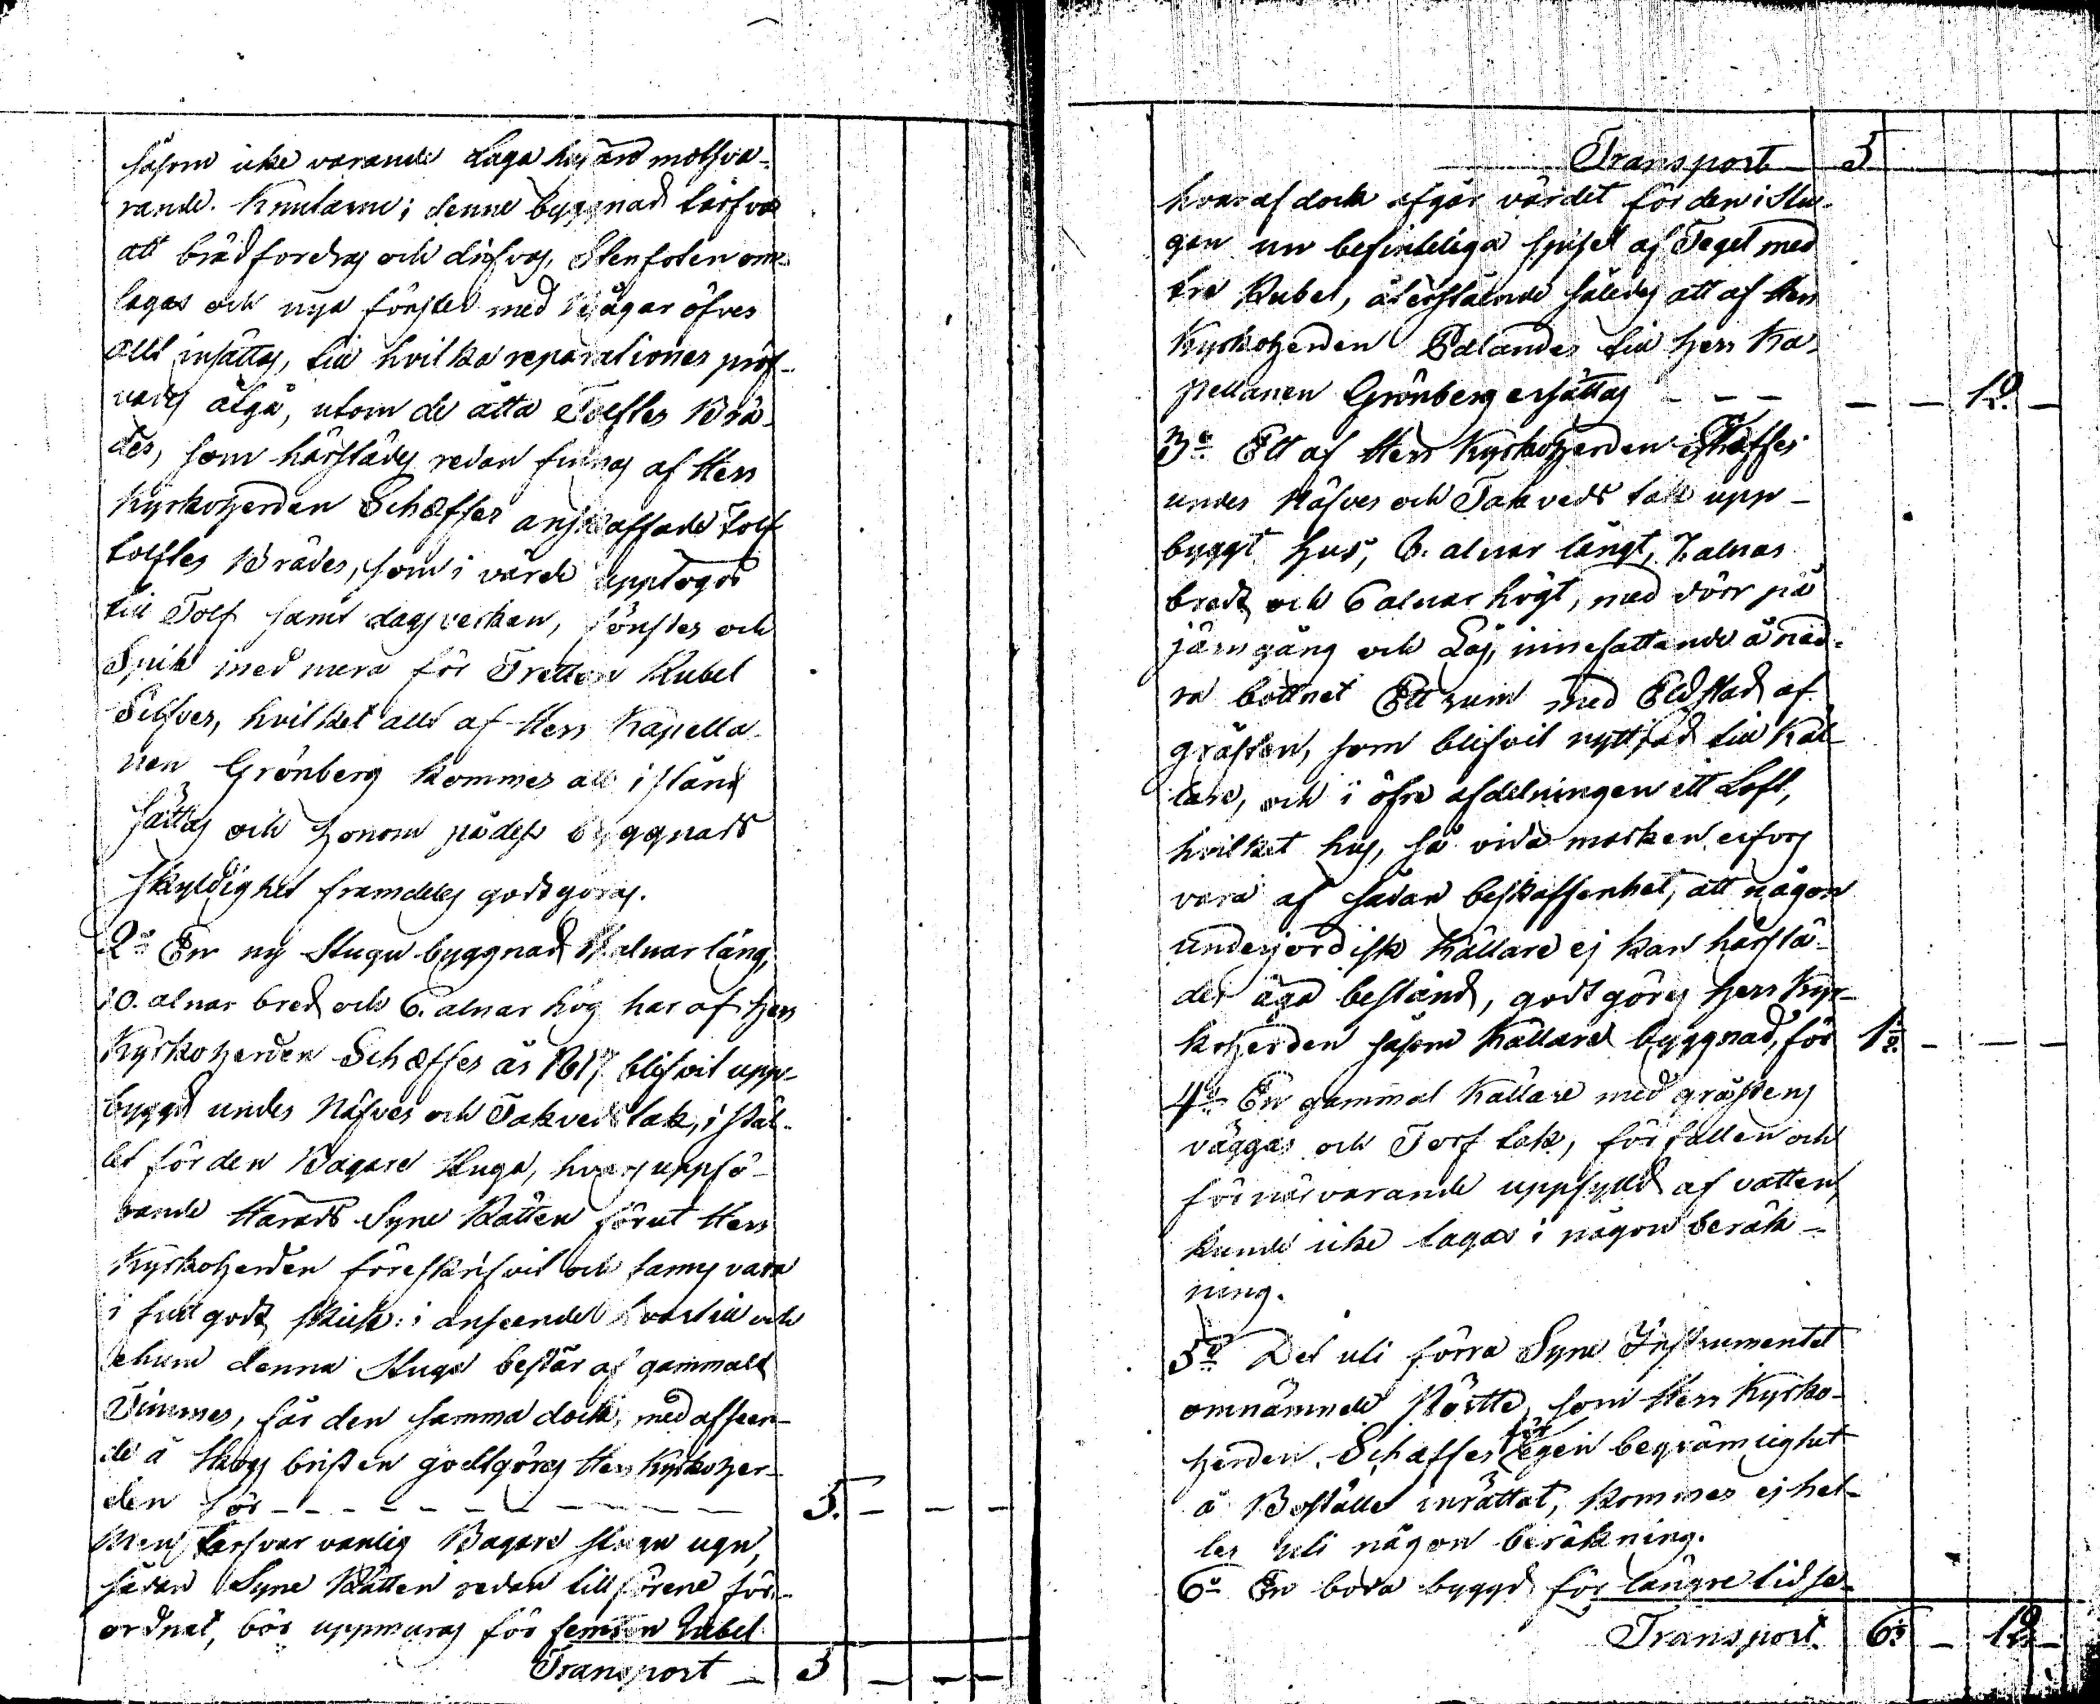 såsom icke varande Laga husärd motsva-
rande. Knutarne i denne byggnad tarfva
att brädfordras och drifvas, Stenfoten om-
lagas och nya fönster med bågar öfver
allt insättas, till hvilka reparationer pröf-
vades åtgå, utom de åtta Tolfter Brä-
der, som härstädes redan finnas af Herr
Kyrkoherden Schæffer anskaffade Tolf
tolfter Bräder, som i värde upptogos
till Tolf samt dagsverken, fönster och
Spik med mera för Tretton Rubel
Silfver, hvilket allt af Herr Kapella-
nen Grönberg kommer att i stånd
sättas och honom på dess byggnads
skyldighet framdeles godtgöras.
2:o En ny Stugu byggnad alnar lång,
10. alnar bred och 6. alnar hög har af Herr
Kyrkoherden Schæffer år 1817 blifvit upp-
byggd under Näfver och Takveds tak, i stäl-
let för den Bagare Stuga, hvars uppfö-
rande Härads Syne Rätten förut Herr
Kyrkoherden föreskrifvit och fanns vara
i fullgodt skick: i anseende hvartill och
ehuru denna Stuga består af gammalt
Timmer, för den samma dock, med afseen-
de å Skogs bristen godtgöres Herr Kyrkoher-
den för - - - - - - - - 5. - - -
Men tarfvar vanlig Bagare stugu ugn,
sådan Syne Rätten redan tillförene för-
ordnat, bör uppmuras för femton Rubel
Transport - 5 - - -
Transport 5
hvaraf dock afgår värdet för den i Stu-
gan nu befinteliga spisel af Tegel med
tre Rubel, återstående således att af Herr
Kyrkoherden till Herr Ka-
pellanen Grönberg ersättas - - - - - 12. -
3:o Ett af Herr Kyrkoherden Schæffer
under Näfver och Takveds tak upp-
byggt hus, 8. alnar långt, 7 alnar
bredt och 6 alnar högt, med dörr på
järngång och Lås, innefattande å ned-
ra bottnet Ett rum med Eldstad af
gråsten, som blifvit nyttjad till Käl-
lare, och i öfre afdelningen ett Loft,
hvilket hus, så vida marken erfors
vara af sådan beskaffenhet, att någon
underjordisk Källare ej kan härstä-
des äga bestånd, godtgöres Herr Kyr-
koherden såsom Källare byggnad, för 1: - - -
4:o En gammal Källare med gråstens
väggar och Torf tak, förfallen och
för närvarande uppfylld af vatten,
kunde icke tagas i någon beräk-
ning.
5:o Det uti förra Syne Instrumentet
omnämnde Pörtte, som Herr Kyrko-
herden Schæffer för egen beqvämlighet
å Bostället inrättat, kommer ej hel-
ler uti någon beräkning.
6:o En boda byggd för längre tid se-
Transport. 6: - 12 -